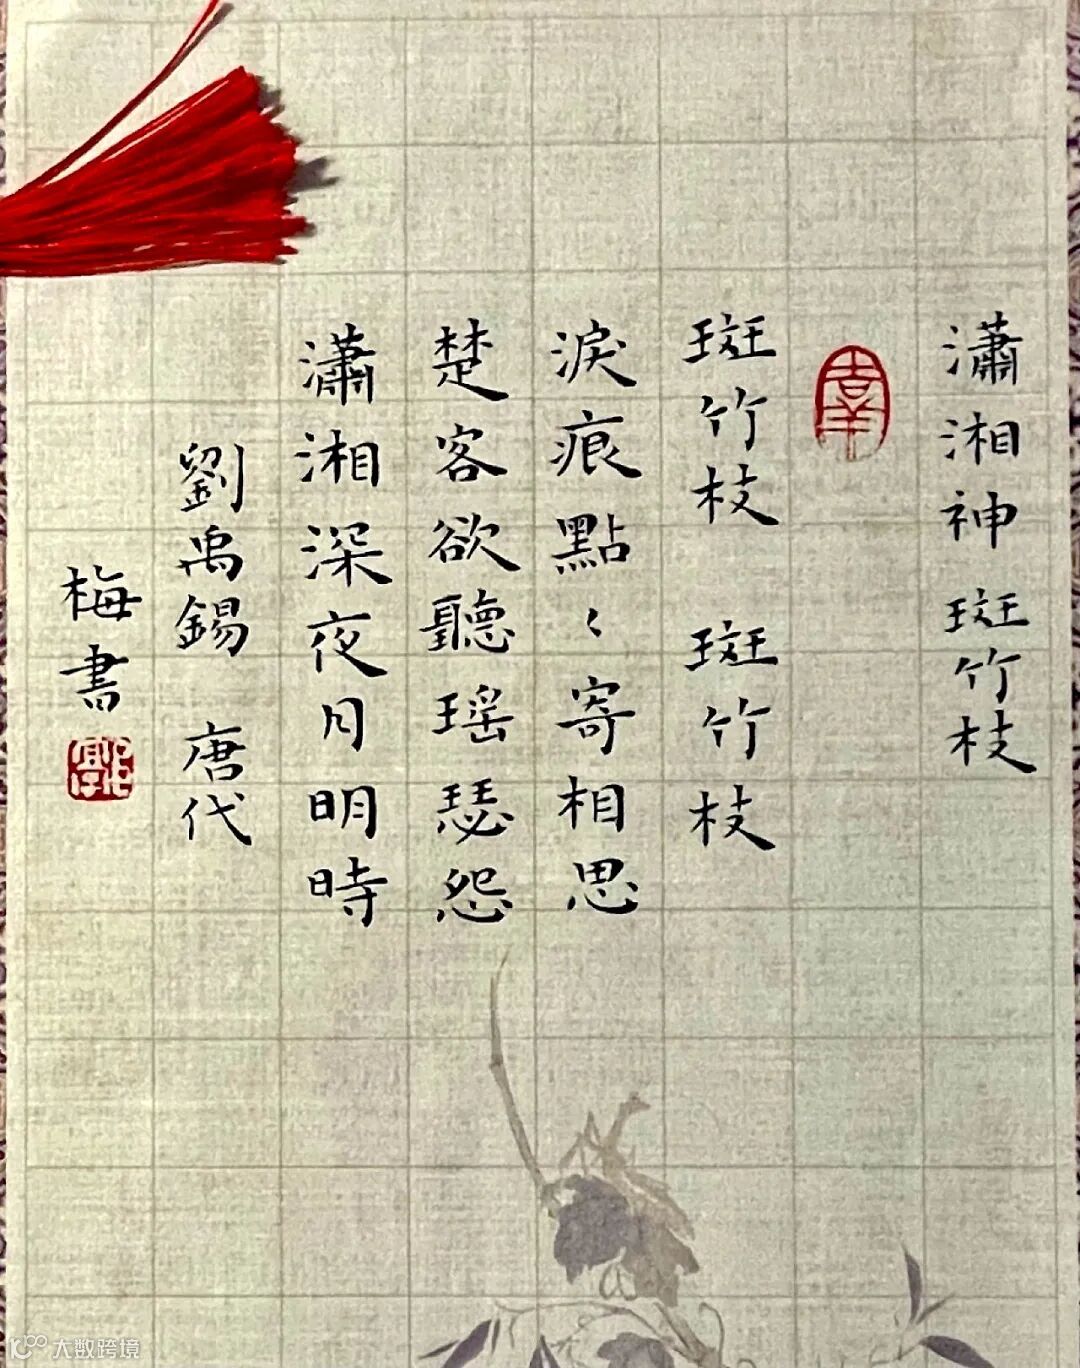 瀟湘神 斑竹枝
斑竹枝 斑竹枝
淚痕點〻寄相思
楚客欲聽瑶瑟怨
瀟湘深夜月明時
劉禹錫 唐代
梅書
大数跨境